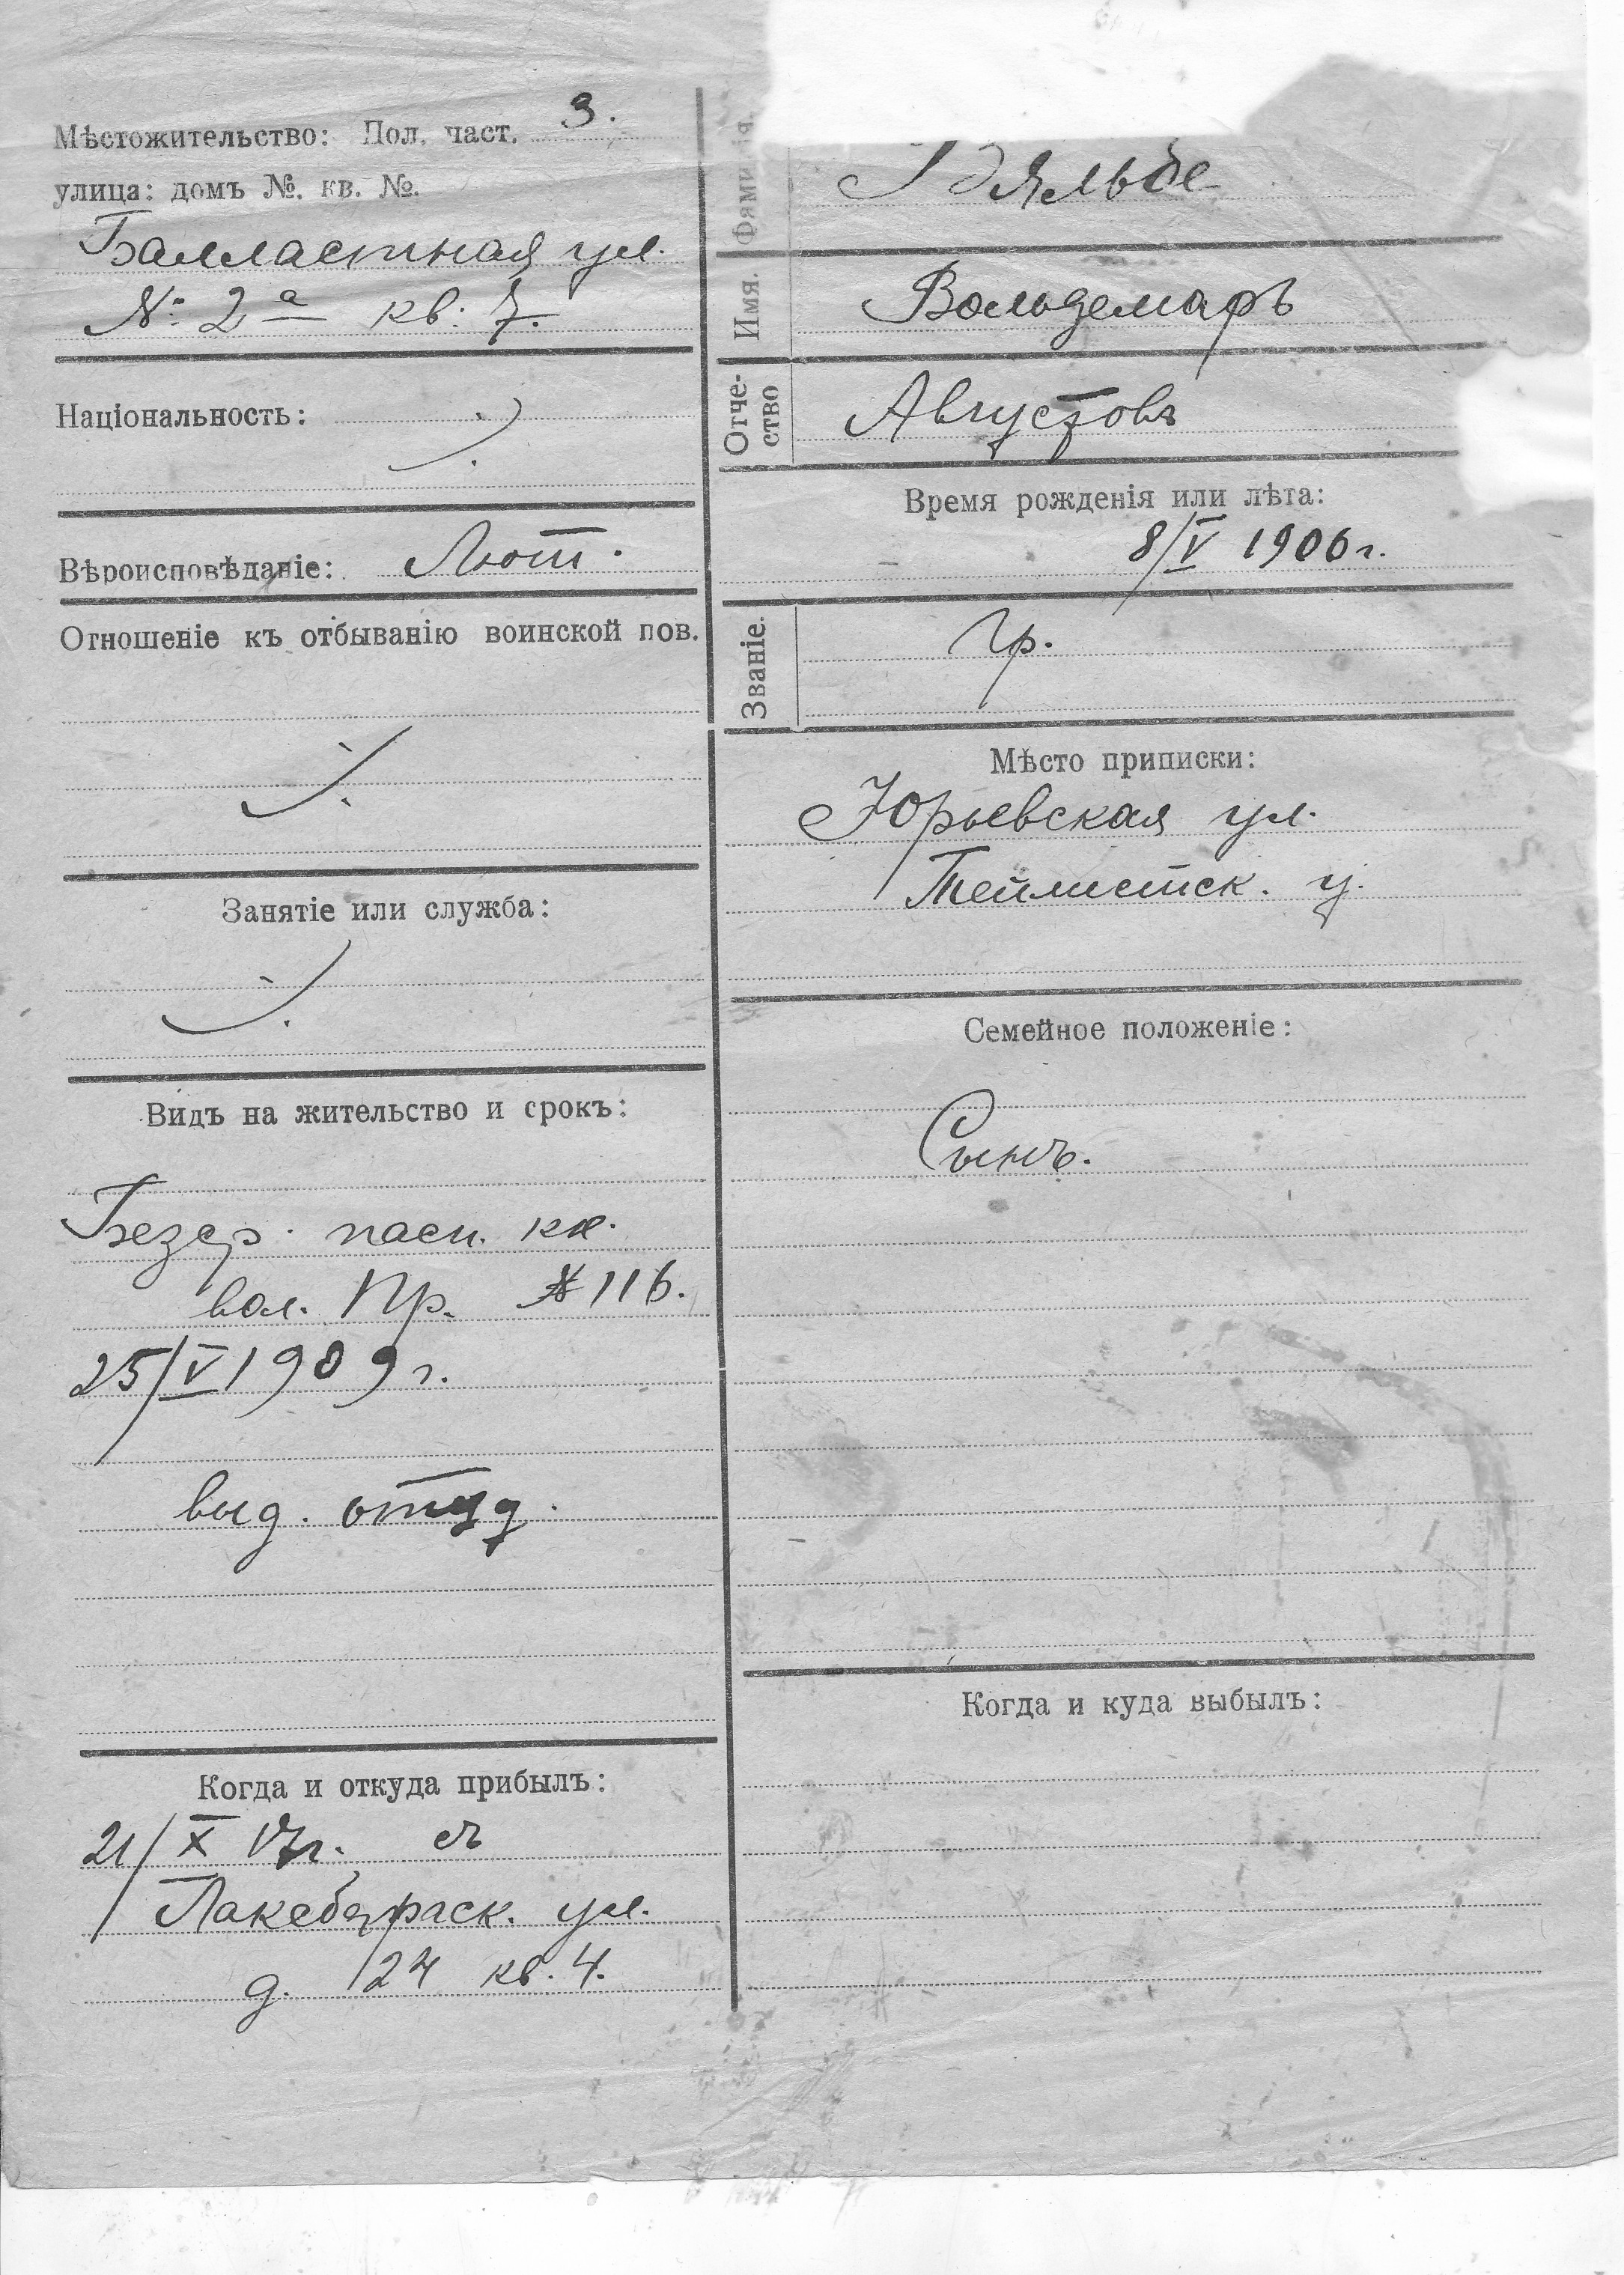 Мѣстожительство: Пол. част. 3.
улица: домъ №. кв. №.
Балластная ул.
№ 2а кв. 7.
Національность:
Вѣроисповѣданіе: Лют.
Отношеніе къ отбыванію воинской пов.
Занятіе или служба:
Видъ на жительство и срокъ:
Безср. пасп. кн.
вол. Пр. № 116.
25/V 1909 г.
выд. отуд.
Когда и откуда прибылъ:
21/X 17 г. съ
ул.
д. 24 кв. 4.
Имя. Вольдемаръ
Отче-
ство Августовъ
Время рожденія или лѣта:
8/V 1906 г.
Званіе. Гр.
Мѣсто приписки:
Юрьевская ул.
у.
Семейное положеніе:
Сынъ.
Когда и куда выбылъ: